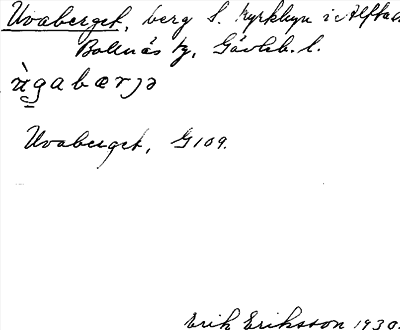 Uvaberget, berg S. Kyrkbyn i Alfta
Bollnäs tg, Gävleb. l.
ùgabærjə
Uvaberget, G109.
Erik Eriksson 1930.